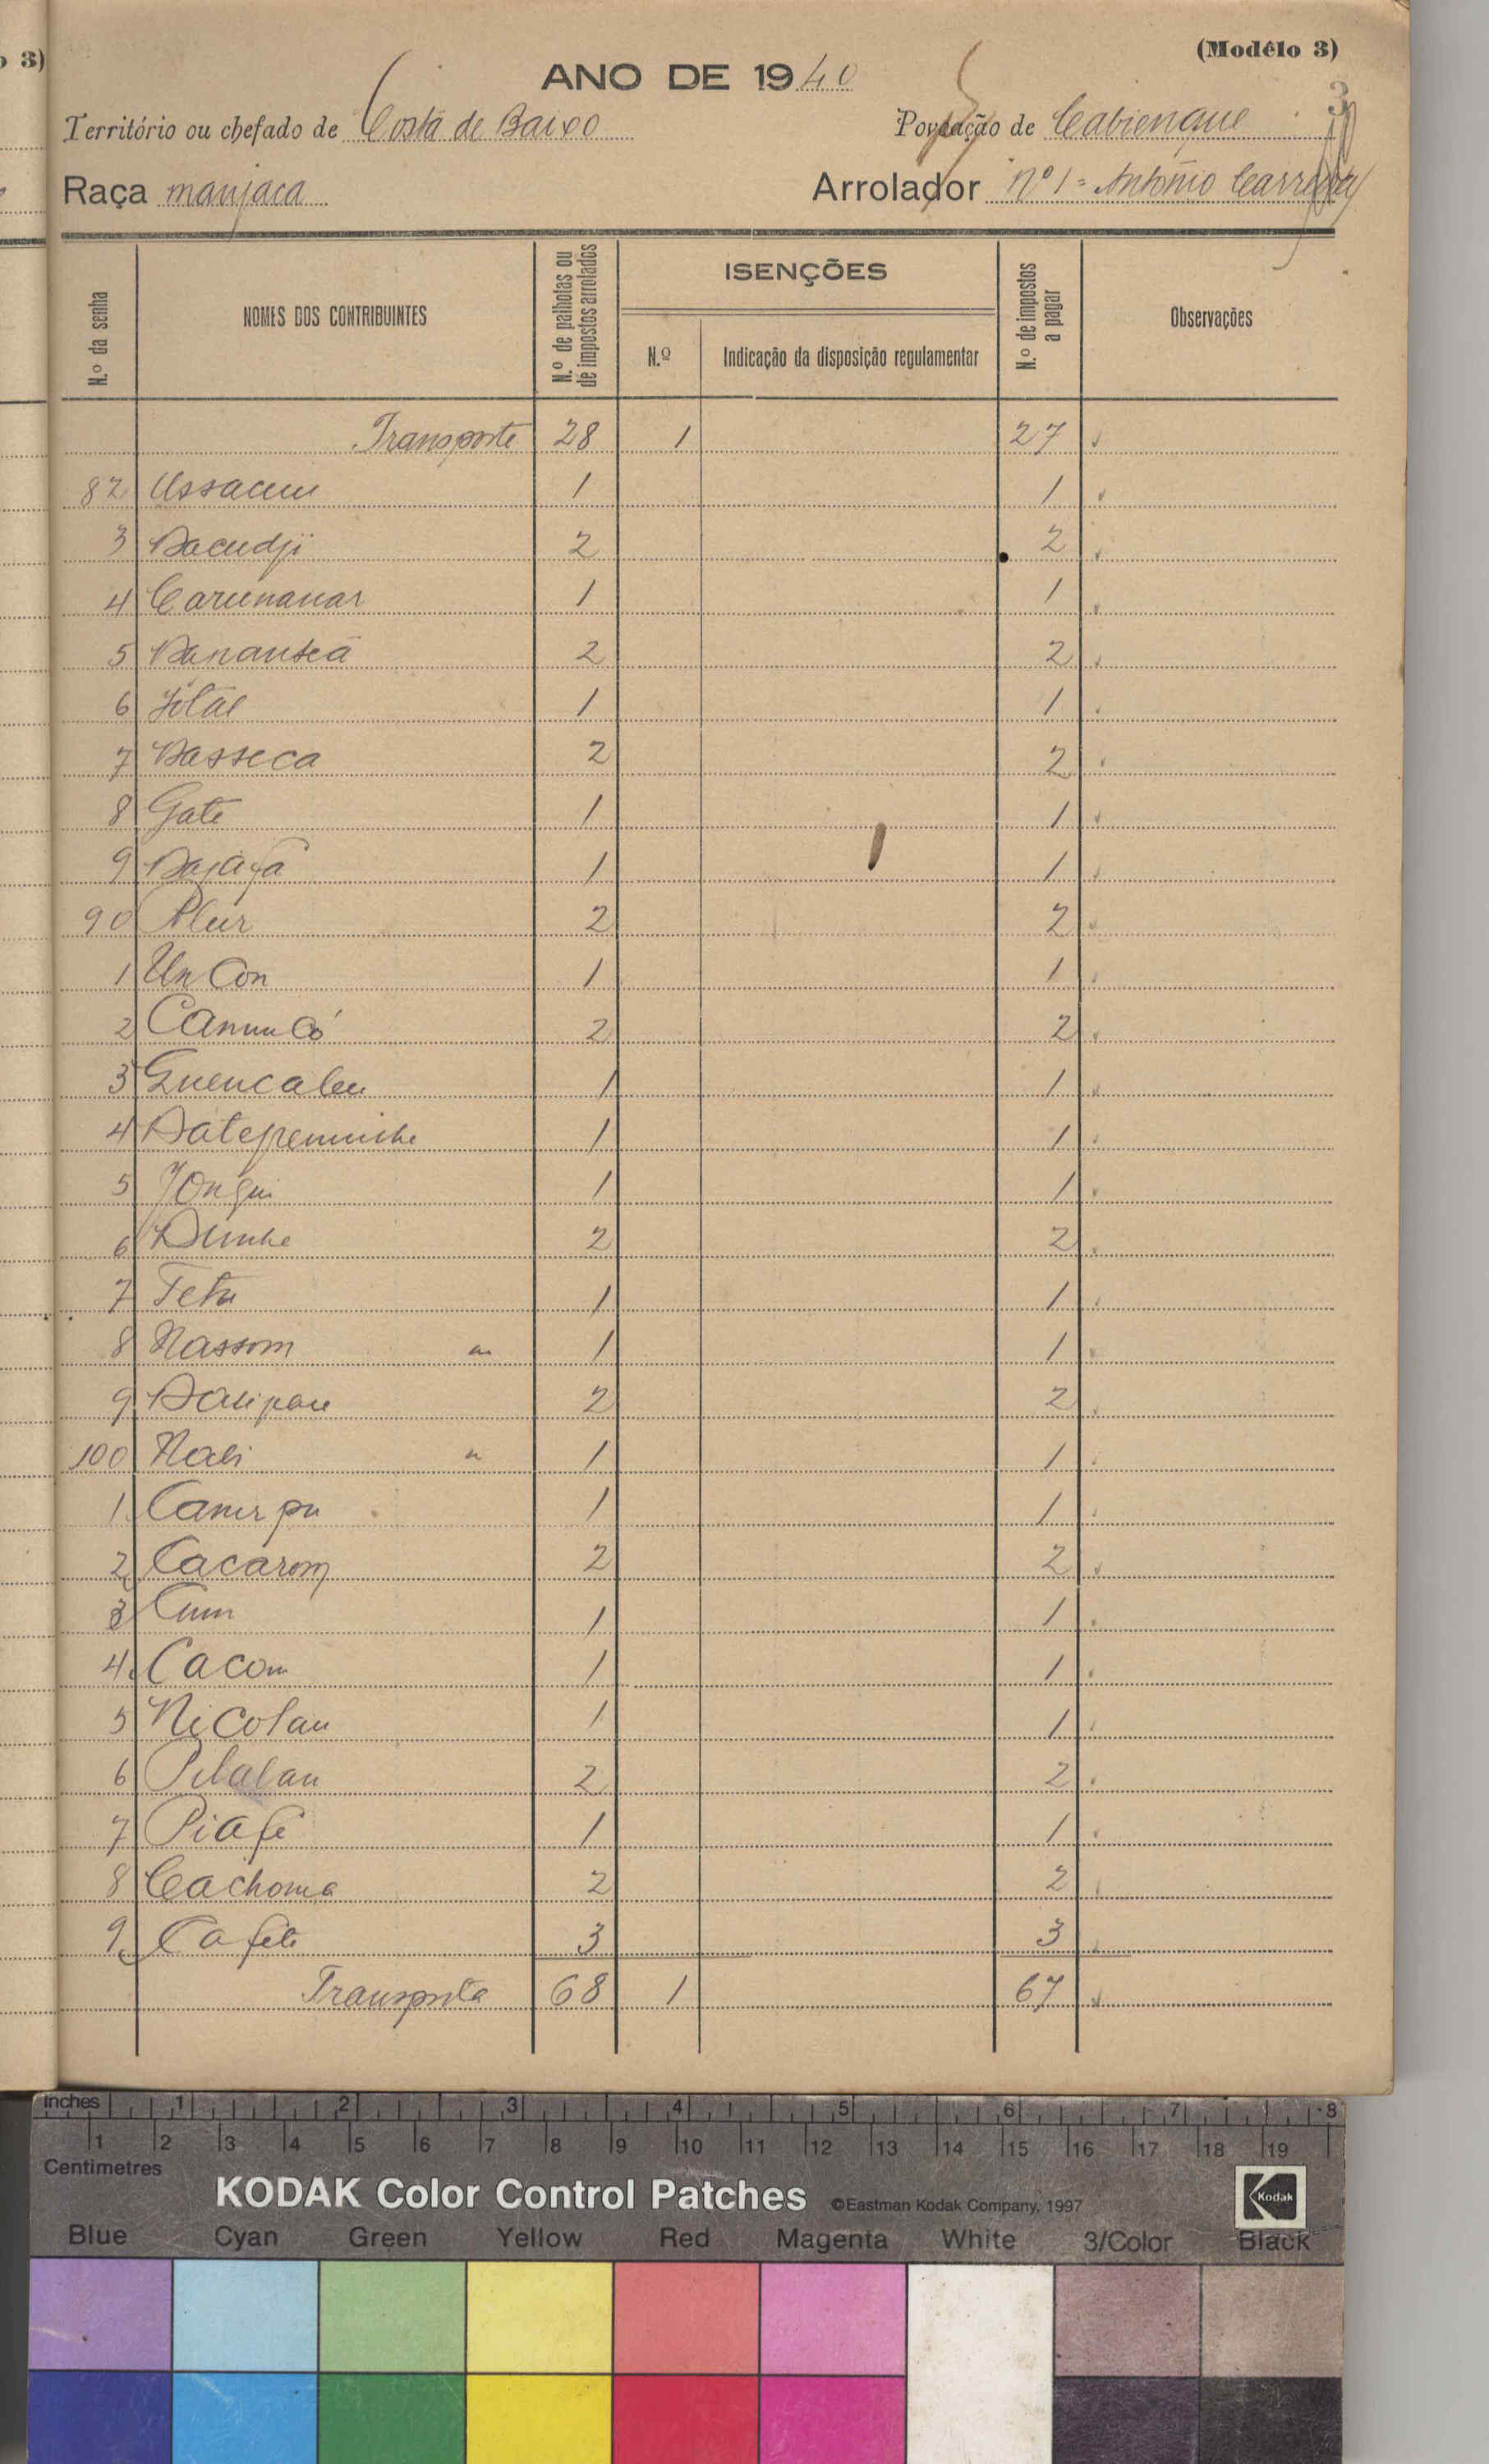 o 3)
(Modêlo 3)
ANO DE 1940
3
Território ou chefado de Costa de Baixo
Povoação de Cabienque
Raça manjaca
Arrolador nº 1 = António
N.º da senha
NOMES DOS CONTRIBUINTES
N.º de palhotas ou de impostos arrolados
ISENÇÕES
N.º
Indicação da disposição regulamentar
N.º de impostos a pagar
Observações
Transporte 28 1 27
82 Ussacum 1 1
3 Bacudji 2 2
4 Carunauar 1 1
5 2 2
6 1 1
7 Basseca 2 2
8 Gate 1 1
9 1 1
90 2 2
1 Un Con 1 1
2 2 2
3 Guencaleu 1 1
4 1 1
5 Jongui 1 1
6 2 2
7 1 1
8 Nassom 1 1
9 2 2
100 Nali 1 1
1 1 1
2 Cacarom 2 2
3 Cum 1 1
4 Cacom 1 1
5 Nicolau 1 1
6 2 2
7 Piafe 1 1
8 Cachoma 2 2
9 Cafete 3 3
Transporta 68 1 67
Inches 1 2 3 4 5 6 7 8
1 2 3 4 5 6 7 8 9 10 11 12 13 14 15 16 17 18 19
Centimetres
KODAK Color Control Patches ©Eastman Kodak Company, 1997 Kodak
Blue Cyan Green Yellow Red Magenta White 3/Color Black